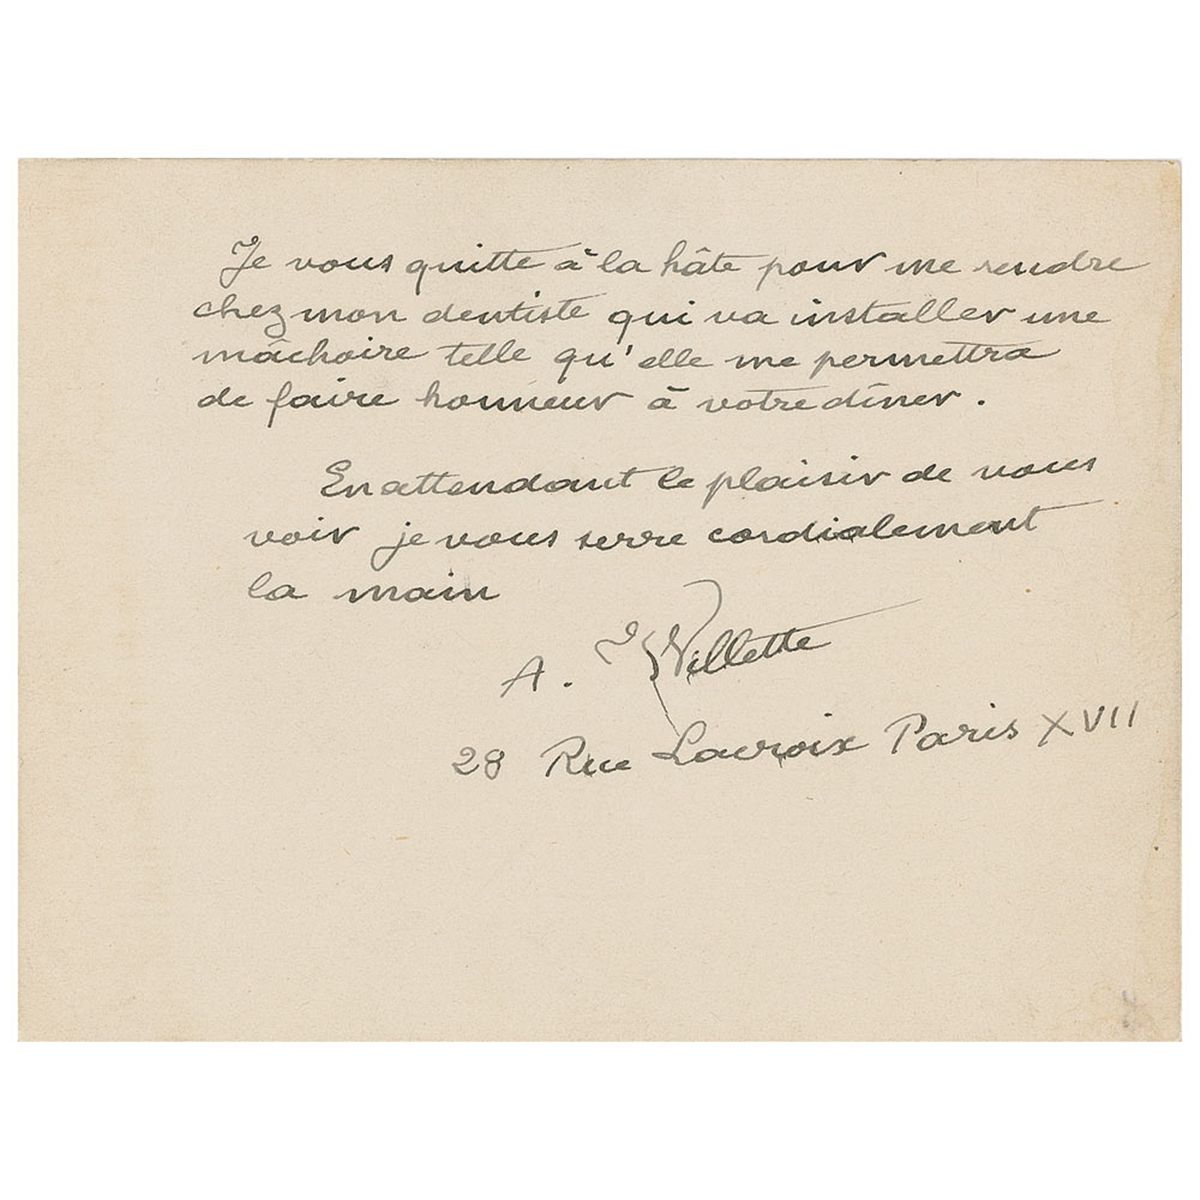 Je vous quitte à la hâte pour me rendre
chez mon dentiste qui va installer une
mâchoire telle qu'elle me permettra
de faire honneur à votre dîner.
En attendant le plaisir de vous
voir je vous serre cordialement
la main
A. Willette
28 Rue Lacroix Paris XVII